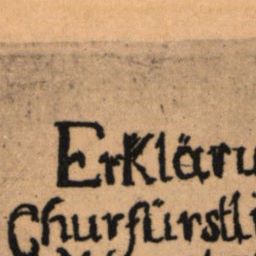 Erkläru
Churfürstli